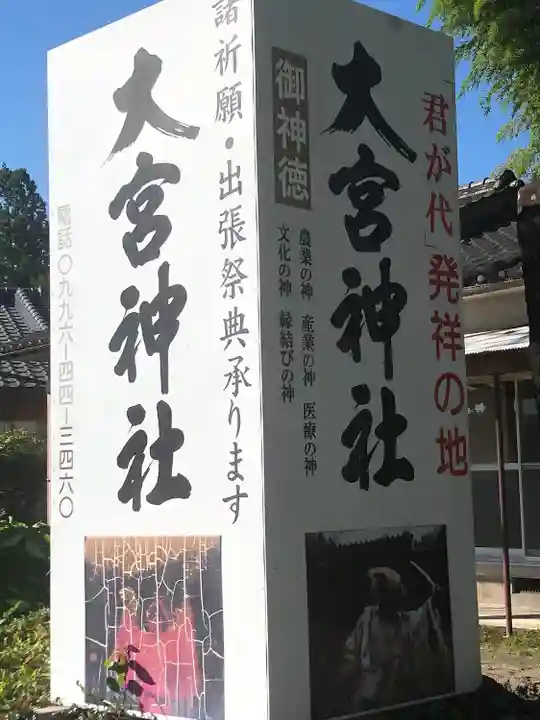 諸祈願・出張祭典承ります
大宮神社
電話〇九九六ー四四ー三四六〇
「君が代」発祥の地
大宮神社
御神徳
農業の神 産業の神 医療の神
文化の神 縁結びの神